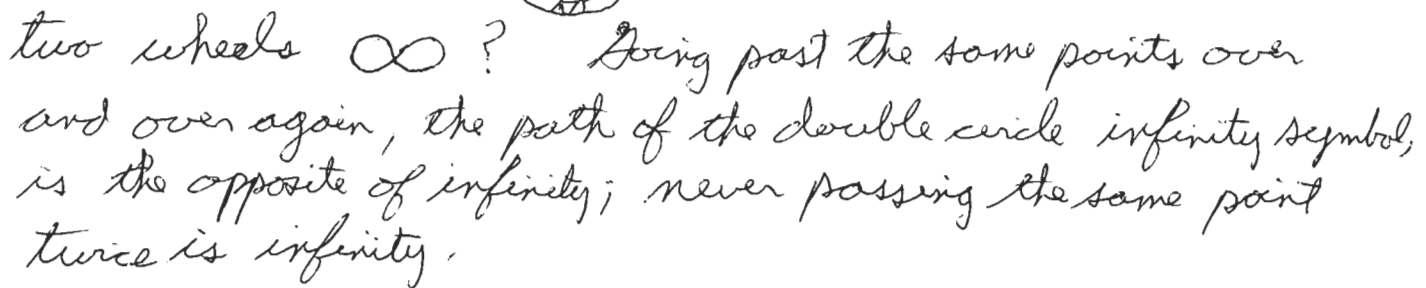 two wheels ∞? Going past the same points over
and over again, the path of the double circle infinity symbol,
is the opposite of infinity; never passing the same point
twice is infinity.